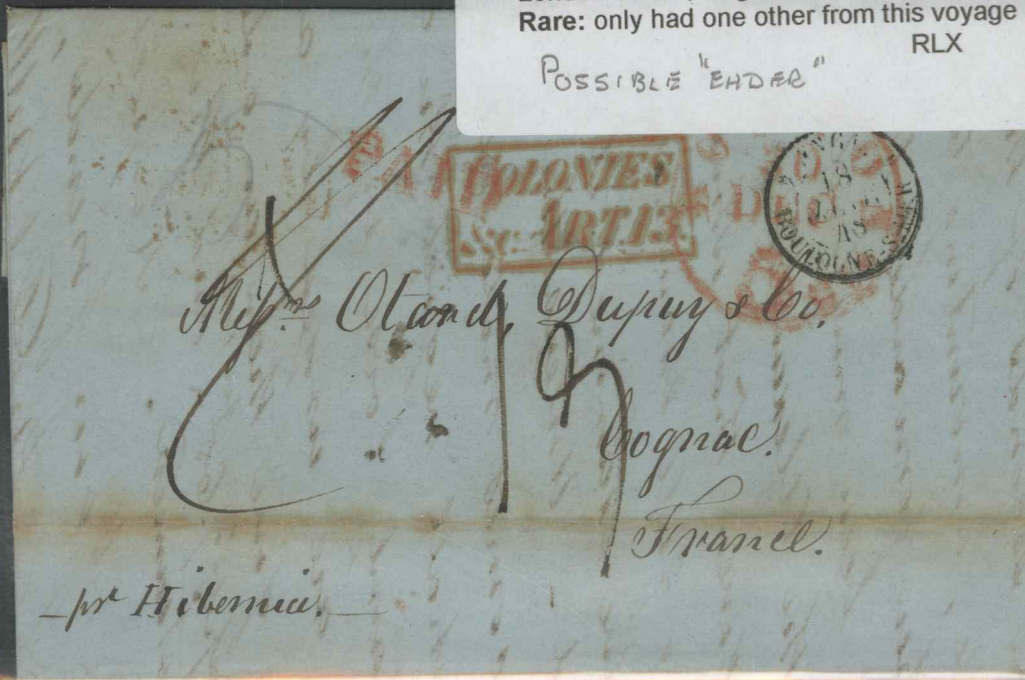 Rare: only had one other from this voyage
RLX
POSSIBLE "EHDER"
PAID
COLONIES
&c. ART 13.
ANGL.
18
48
BOULOGNE-S-MER
Mess.rs Otard, Dupuy & Co.
Cognac.
France.
pr Hibernia.